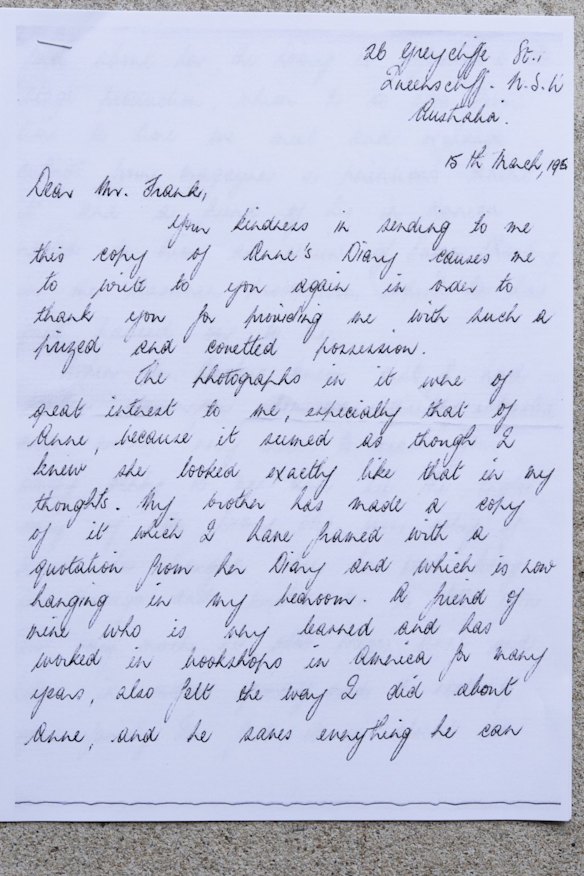 26 Greycliffe St.,
Queenscliff. N.S.W
Australia.
15 th March, 195
Dear Mr. Frank,
Your kindness in sending to me
this copy of Anne's Diary causes me
to write to you again in order to
thank you for providing me with such a
prized and covetted possession.
The photographs in it were of
great interest to me, especially that of
Anne, because it seemed as though I
knew she looked exactly like that in my
thoughts. My brother has made a copy
of it which I have framed with a
quotation from her Diary and which is now
hanging in my bedroom. A friend of
mine who is very learned and has
worked in bookshops in America for many
years, also felt the way I did about
Anne, and he saves everything he can